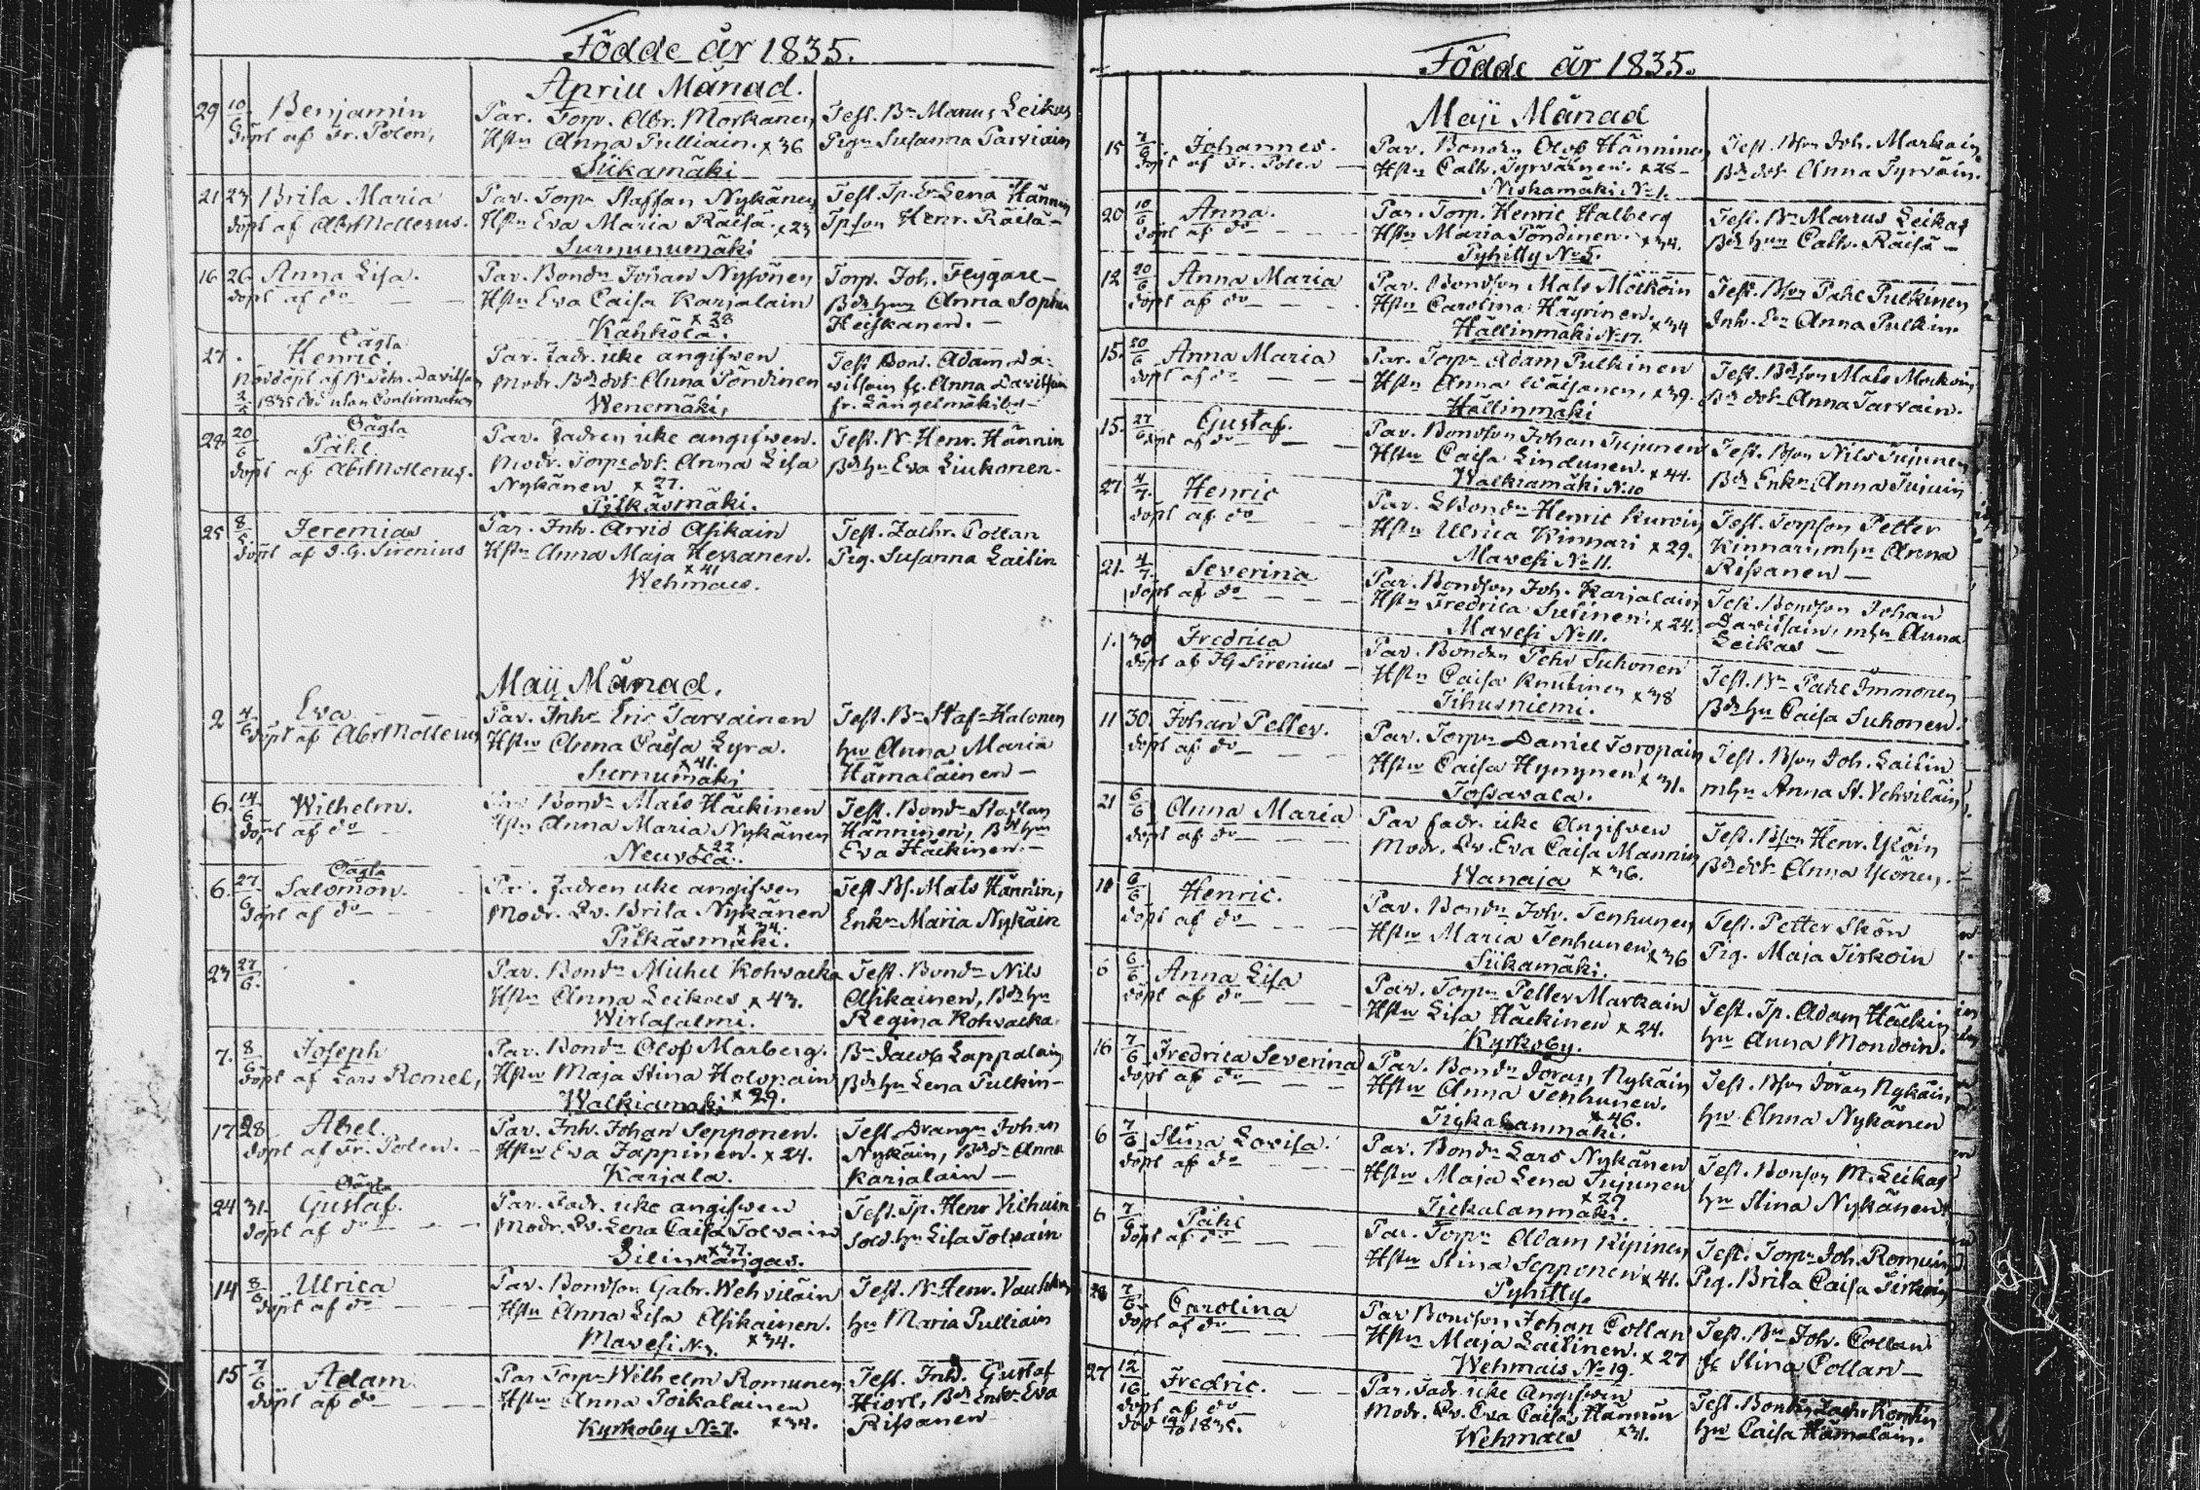 Födde år 1835.
Aprill Månad.
29 10/6 Benjamin
döpt af Fr. Polen,
Par. Torp. Abr. Markanen
Hstn Anna Pulliain. x 36
Siikamäki
Test. Bn Manus Leikas
Pign Susanna Parviain
21 23 Brita Maria
döpt af Abr Mollerus.
Par. Torpn Staffan Nykänen
Hstn Eva Maria Räisä. x 23
Surnunumäki
Test. Tp. Er Lena Hännin
Tpson Henr. Räisä -
16 26 Anna Lisa.
döpt af do
Par. Bondn Johan Nyssönen
Hstn Eva Caisa Karjalain
x 28
Kähkölä.
Torp. Joh. Flygare -
Bdshun Anna Sophia
Heiskanen. -
27. Oägta
Henric.
Nöddöpt af Bn Pehr. Davidson
1835 död utan Confirmation
Par. Fadr. icke angifwen
Modr. Bddotr Anna Pöndinen
Wenemäki,
Test Bond. Adam Da-
vidson fr. Längelmäki by -
28 20/6 Oägta
Påhl.
döpt af Abr Mollerus.
Par. Fadren icke angifwen.
Modr. Torpsdotr Anna Lisa
Nykänen x 27.
Pitkäsmäki.
Test. Bn Henr. Hännin
Bdshn Eva Liukonen.
25 8/5 Jeremias
döpt af J. G. Sirenius
Par. Inh. Arvid Asikain
Hstn Anna Maja Heskanen.
x 41
Wehmais.
Test. Zachr. Collan
Pig. Susanna Laitin
Maij Månad.
2 4/6 Eva
döpt af Abr Mollerus
Par. Inhr Eric Tarvainen
Hstn Anna Caisa Lyra.
x 41.
Surnumäki
Test. Bn Staf. Halonen
hn Anna Maria
Hämäläinen -
6. 14/6 Wilhelm.
döpt af do
Bondn Mats Häckinen
Hstn Anna Maria Nykänen
x 22
Neuvola.
Test. Bondn Staffan
Hänninen, Bdhn
Eva Häckinen. -
6. 27/6 Oägta
Salomon.
döpt af do
Par. Fadren icke angifwen
Modr. Qv. Brita Nykänen
x 34.
Pitkäsmäki.
Test Bs. Mats Hännin,
Enkn Maria Nykäin
23 27/6.
Par. Bondn Michel Kohvacka
Hstn Anna Leikas x 43.
Wirtasalmi.
Test. Bondn Nils
Asikainen, Bdshn
Regina Kohvacka.
7. 8/6 Joseph
döpt af Lars Romel,
Par. Bondn Olof Marberg.
Hstn Maja Stina Holopain
x 29.
Walkiamäki
Bn Jacob Lappalain
Bdshn Lena Pulkin -
17 28 Abel.
döpt af Fr. Polen. -
Par. Inh. Johan Sepponen.
Hstn Eva Jäppinen. x 24.
Karjala.
Test Drängn Johan
Nykäin, Bddr Anna
Karjalain -
24 31. Oägta
Gustaf.
döpt af do
Par. Fadr. icke angifwen
Modr. Qv. Lena Caisa Tolvain
x 37.
Silinkangas.
Test. Tp. Henr Vilhuin
Sold. hn Lisa Tolvain
14 8/6 Ulrica
döpt af do
Par. Bondson Gabr. Wehviläin
Hstn Anna Lisa Asikainen.
Mavesi N3. x 34.
Test. Bn Henr.
hn Maria Pulliain
15 7/6 Adam
döpt af do
Par Torpn Wilhelm Romunen
Hstn Anna Poikalainen
Kyrkoby No 7. x 34.
Test. Inh. Gustaf
Hiort, Bds Enkn Eva
Rissanen
Födde år 1835.
Maji Månad
15 7/6 Johannes.
döpt af Fr. Polen
Par. Bonden Olof Hänninen
Hstn Cath. Tyrväinen. x 28 -
Niskamäki No 1.
Test. Bson Joh. Markain
Bddotr Anna Tyrväin.
20 10/6 Anna.
döpt af do
Par. Torp. Henric Halberg
Hstn Maria Pöndinen. x 34.
Pyhitty No 5.
Test. Bn Marcus Leikas
Bdshun Cath. Räisä -
12 20/6 Anna Maria
döpt af do
Par. Bondson Mats Möcköin
Hstn Carolina Häyrinen. x 34
Hällinmäki No 17.
Test. Bson Påhl Pulkinen
Inh. Er Anna Pulkin.
15. 20/6 Anna Maria
döpt af do
Par. Torpn Adam Pulkinen
Hstn Anna Wäisänen, x 39.
Hällinmäki
Test. Bdson Mats Möckoin
Bddotr Anna Tarvain.
15. 27/6 Gustaf.
döpt af do
Par. Bondson Johan Tujunen
Hstn Caisa Lindunen. x 44.
Walkiamäki No 10
Test. Bson Nils Tujunen
Bds Enkn Anna Tujuin
27 4/7. Henric
döpt af do
Par. Bondn Henric Kurvin
Hstn Ulrica Kinnari x 29.
Mavesi No 11.
Test. Torpson Petter
Kinnari, m hn Anna
Rissanen -
21. 4/7. Severina
döpt af do
Par. Bondson Joh. Karjalain
Hstn Fredrica Sutinen. x 24.
Mavesi No 11.
Test. Bondson Johan
Davidsain, m hn Anna
Leikas -
1. 30 Fredrica
döpt af J G Sirenius -
Par. Bonden Pehr Suhonen
Hstn Caisa Knutinen x 38
Tihusniemi.
Test. Bn Påhl Immonen
Bdshn Caisa Suhonen.
11 30. Johan Petter.
döpt af do
Par. Torpn Daniel Toropain
Hstn Caisa Hynynen x 31.
Tossavala.
Test. Bson Joh. Laitin
m hn Anna St. Vehviläin,
21 6/6 Anna Maria
döpt af do
Par fadr. icke Angifwen
Modr. Qv. Eva Caisa Mannin
x 36.
Wanaja
Test. Bson Henr. Ylöin
Bddotr Anna Ylönen. -
18 6/6 Henric.
döpt af do
Par. Bondn Joh. Tenhunen
Hstn Maria Tenhunen x 36
Siikamäki.
Test. Petter Skön
Pig. Maja Tirkoin
6 6/6 Anna Lisa
döpt af do
Par. Torpn Petter Markain
Hstn Lisa Häckinen x 24.
Kyrkoby.
Test. Tp. Adam Häckin
hn Anna Mondoin.
16 7/6 Fredrica Severina
döpt af do
Par. Bondn Göran Nykäin
Hstn Anna Tenhunen.
x 46.
Test. Bson Göran Nykäin,
hn Anna Nykänen
6 7/6 Stina Lovisa.
döpt af do
Par. Bondn Lars Nykänen
Hstn Maja Lena Tujunen
x 29
Tickalanmäki.
Test. Bonson M. Leikas
hn Stina Nykänen.
6 7/6 Påhl
döpt af do
Par. Torpn Adam Ripinen
Hstn Stina Sepponen x 41.
Pyhitty.
Test. Torpn Joh. Romuin
Pig. Brita Caisa Tirkoin
28 7/6. Carolina
döpt af do
Par Bondson Johan Collan
Hstn Maja Laitinen. x 27
Wehmais No 19.
Test. Bn Joh. Collan
fl Stina Collan -
27 12/16 Fredric.
döpt af do
död 14/10 1835.
Par. Fadr icke Angifwen
Modr. Qv. Eva Caisa Hännin
x 31.
Wehmais
Test. Bond
hn Caisa Hämäläin.